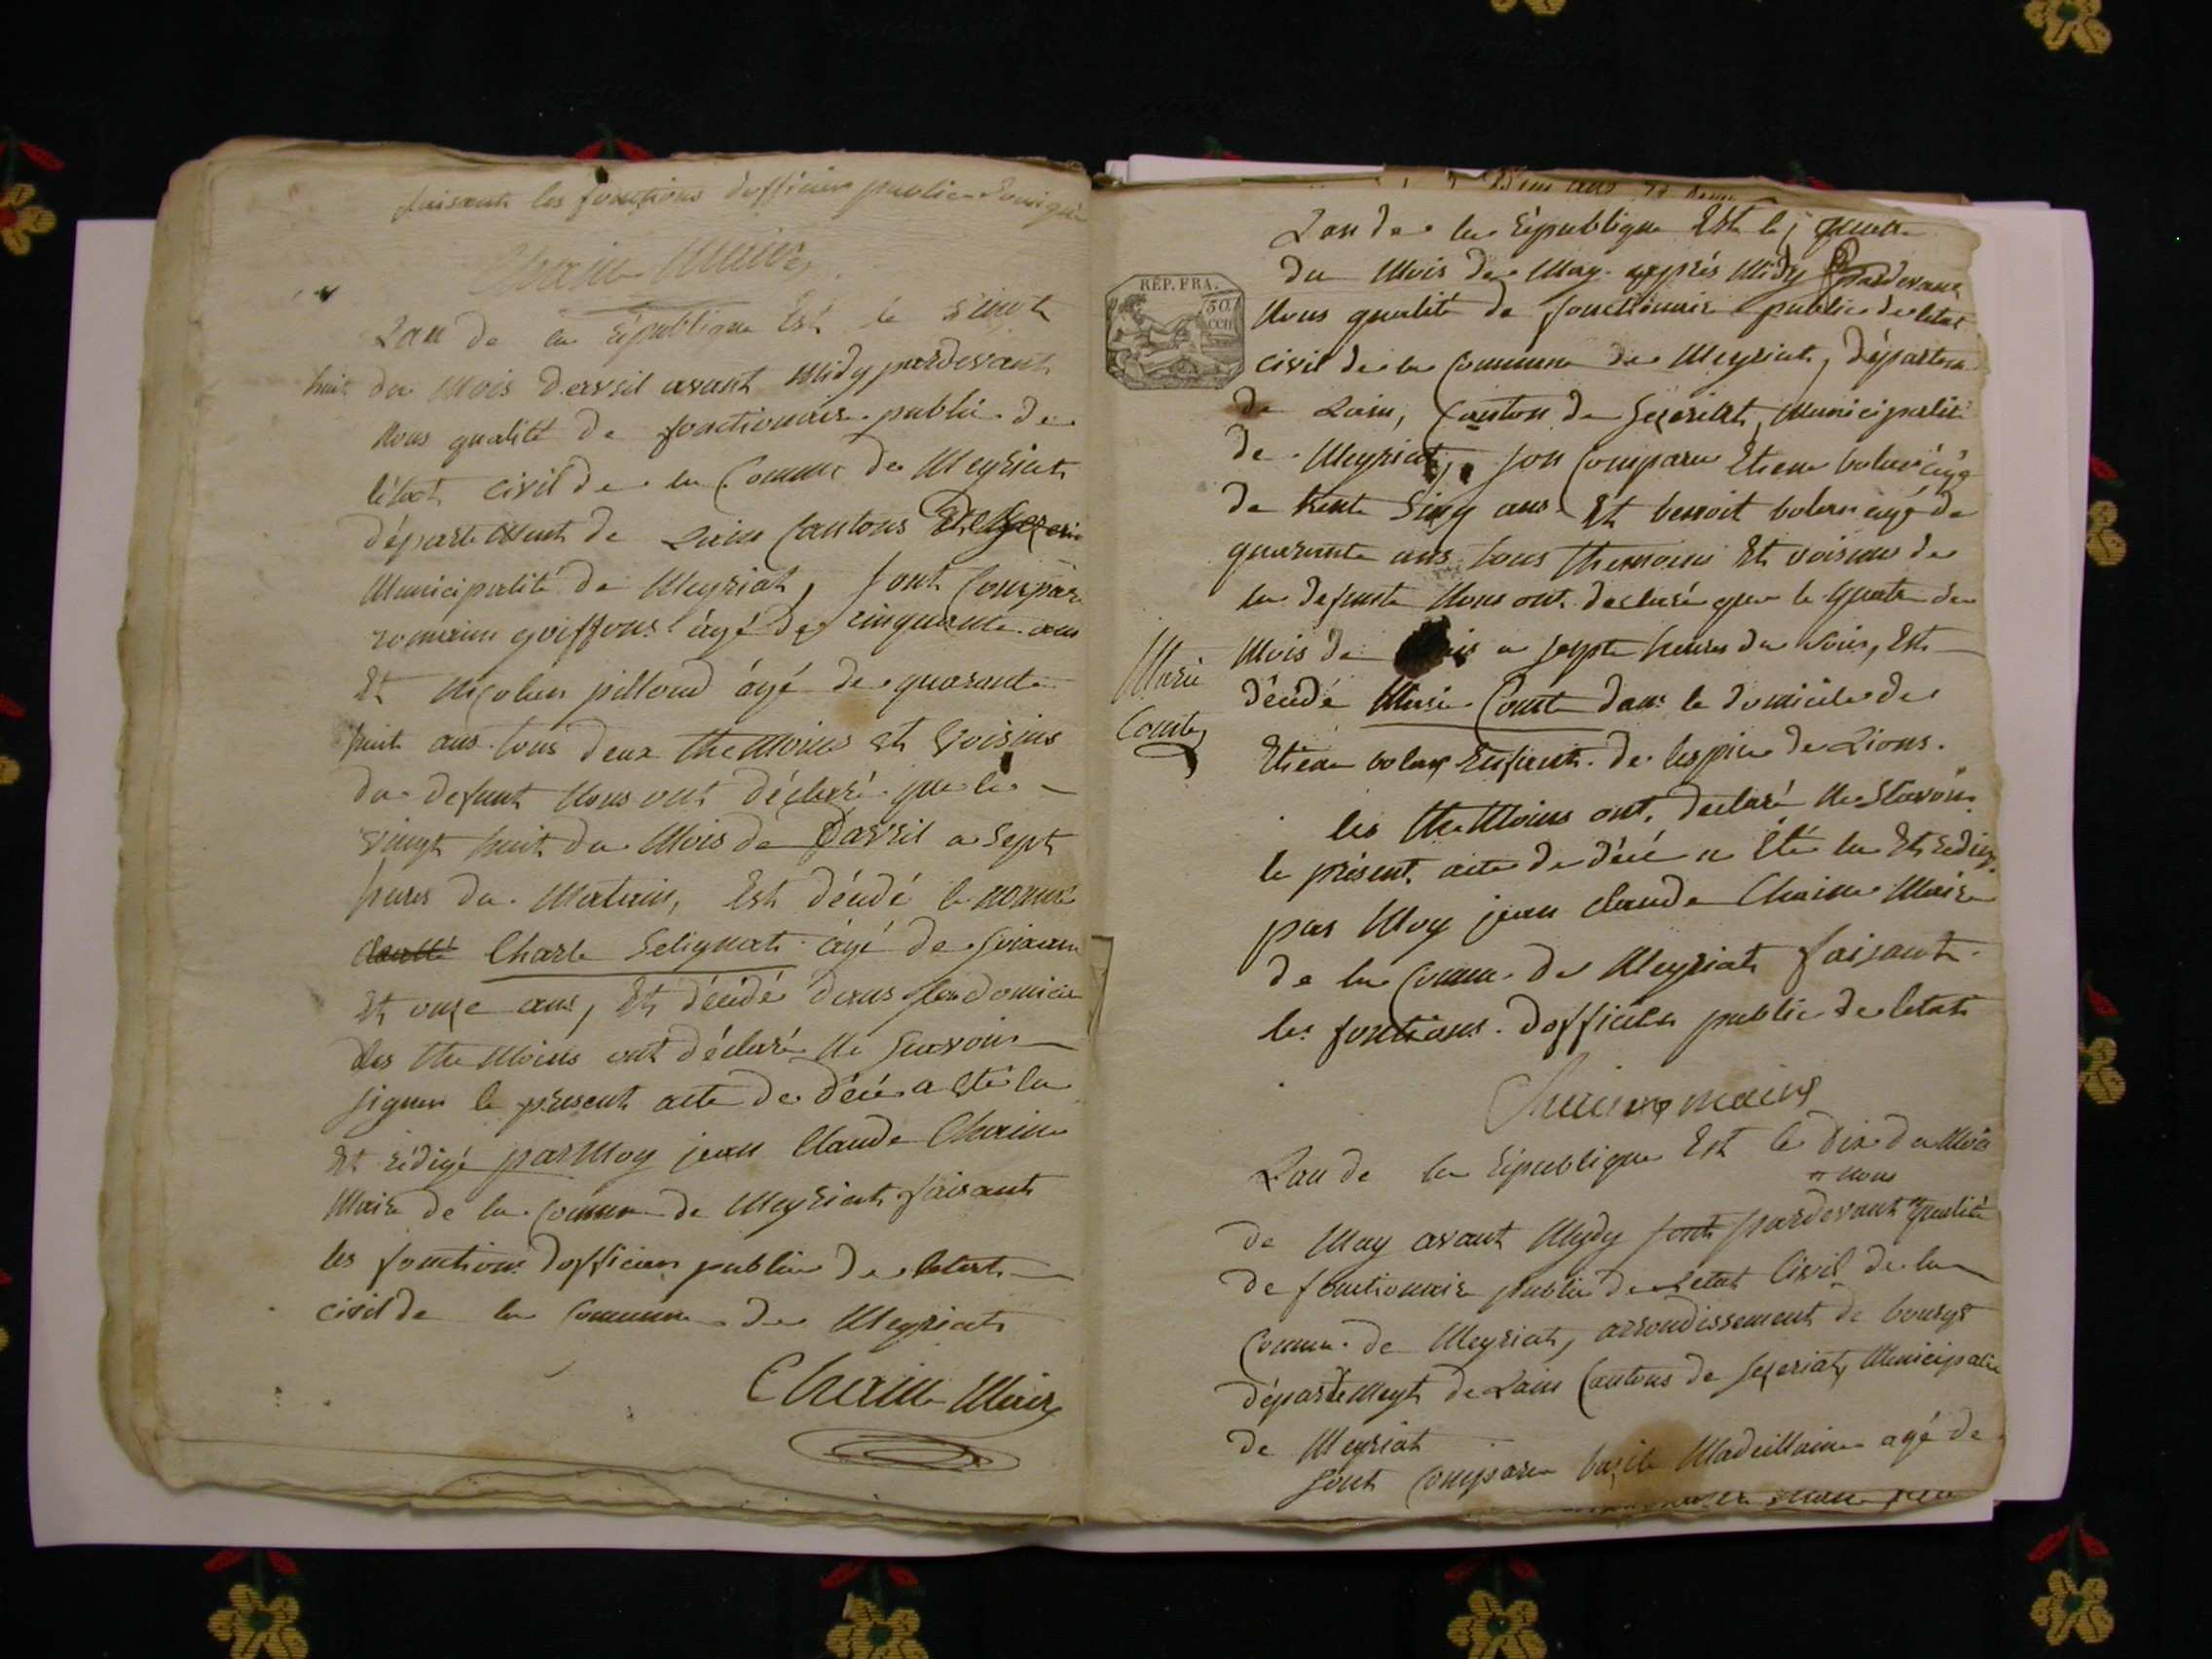 faisant les fonctions dofficier public
Chaine Maire
Lan de la république Est le vint
huit du Mois davril avant Midy pardevant
Nous qualité de fonctionaire public de
létat civil de la Commune de Meyriat
département de Lain Cantons
Municipalité de Meyriat, sont Compar
romain goiffons âgé de cinquante ans
Et nicolas pilloud âgé de quarante
huit ans tous deux themoins et voisins
du defunt Nous ont déclaré que le
vingt huit du Mois de Davril a Sept
heures du Matain, Est décédé le nommé
Charle Selignat âgé de soixante
Et onze ans, Et décédé dans son domicile
Les themoins ont déclaré Ne scavoir
signer le present acte de décé a Eté lu
Et rédigé par Moy jean Claude Chaine
Maire de la Commune de Meyriat faisant
les fonctions dofficier public de letat
civil de la Commune de Meyriat
Chaine Maire
Lan de la république Est le quatre
REP. FRA.
50 cen
du Mois de May apprés Midy pardevant
Nous qualité de fonctionaire public de letat
civil de la Commune de Meyriat, départem
de Lain, Canton de Sezeriat, Municipalité
de Meyriat, son Comparu Etiene bolar âgé
de trente Sinq ans Et benoit bolar âgé de
quarante ans tous themoins Et voisins de
la defunte Nous ont declaré que le quatre du
Marie
Comte
Mois de a septe heures du soir, Est
décédé Marie Comte dans le domicile de
Etiene bolar Enfant de lospice de Lions.
les theMoins ont declaré Ne Scavoir
le présent acte de décé a Été lu Et redigé
par Moy jean claude Chaine Maire
de la Commune de Meyriat faisant
les fontions dofficier public de letat
Chaine maire
Lan de la république Est le dix du Mois
nous
de May avant Mydy sont pardevant qualité
de fonctionaire public de letat Civil de la
Commune de Meyriat, arrondissement de bourgt
département de Lain Cantons de Sezeriat, Municipalité
de Meyriat
sont Comparu bazile Madeillaine agé de